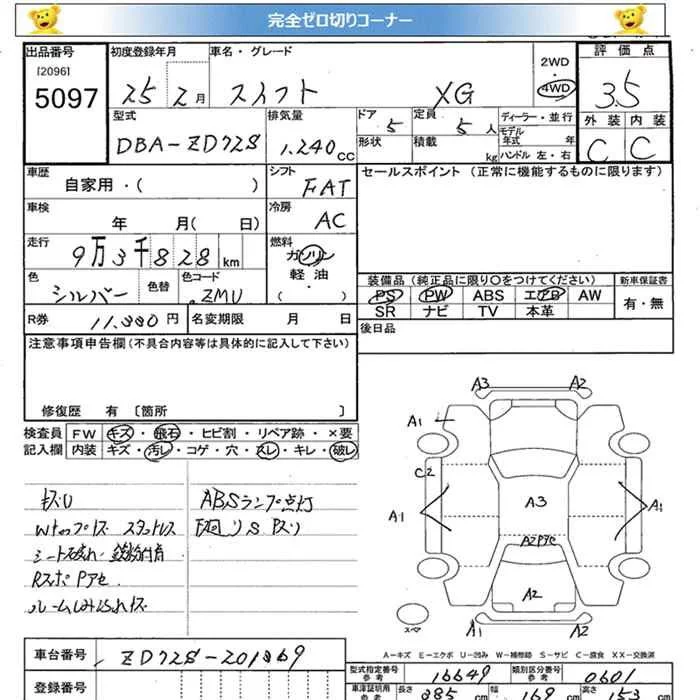 完全ゼロ切りコーナー
出品番号 初度登録年月 車名・グレード 2WD 評価点
[2096]
5097 25 2月 スイフト XG ・4WD 3.5
型式 排気量 ドア 定員 ディーラー・並行 外装 内装
DBA-ZD72S 1,240cc 5 5人 モデル年式 年 C C
形状 積載 kg ハンドル 左・右
車歴 シフト セールスポイント (正常に機能するものに限ります)
自家用・( ) FAT
車検 冷房
年 月( 日) AC
走行 燃料
9万3千828km ガソリン
軽油
色 色替 色コード ・
シルバー ZMU ( )
装備品 (純正品に限り〇をつけてください) 新車保証書
PS PW ABS エアB AW 有・無
SR ナビ TV 本革
R券 円 名変期限 月 日
後日品
注意事項申告欄(不具合内容等は具体的に記入して下さい)
修復歴 有 [箇所 ]
検査員 FW キズ・飛石・ヒビ割・リペア跡・×要
記入欄 内装 キズ・汚レ・コゲ・穴・スレ・キレ・破レ
キズU ABSランプ点灯
下廻りS
A3 A2
A1
C2
A1 A3 A1
A2
A2 A1
スペア
A-キズ E-エクボ U-凹み W-補修跡 S-サビ C-腐食 XX-交換済
車台番号 ZD72S-201369
登録番号
型式指定番号 参考 16649 類別区分番号 参考 0601
車津証明用 参考 長さ 385cm 幅 169cm 高さ 153cm